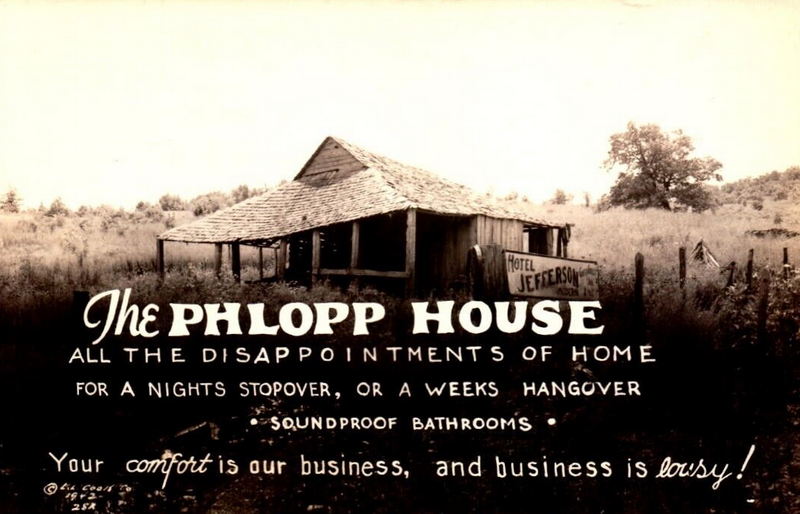 HOTEL
JEFFERSON
The PHLOPP HOUSE
ALL THE DISAPPOINTMENTS OF HOME
FOR A NIGHTS STOPOVER, OR A WEEKS HANGOVER
• SOUNDPROOF BATHROOMS •
Your comfort is our business, and business is lousy!
© L.L. Cook Co
1942